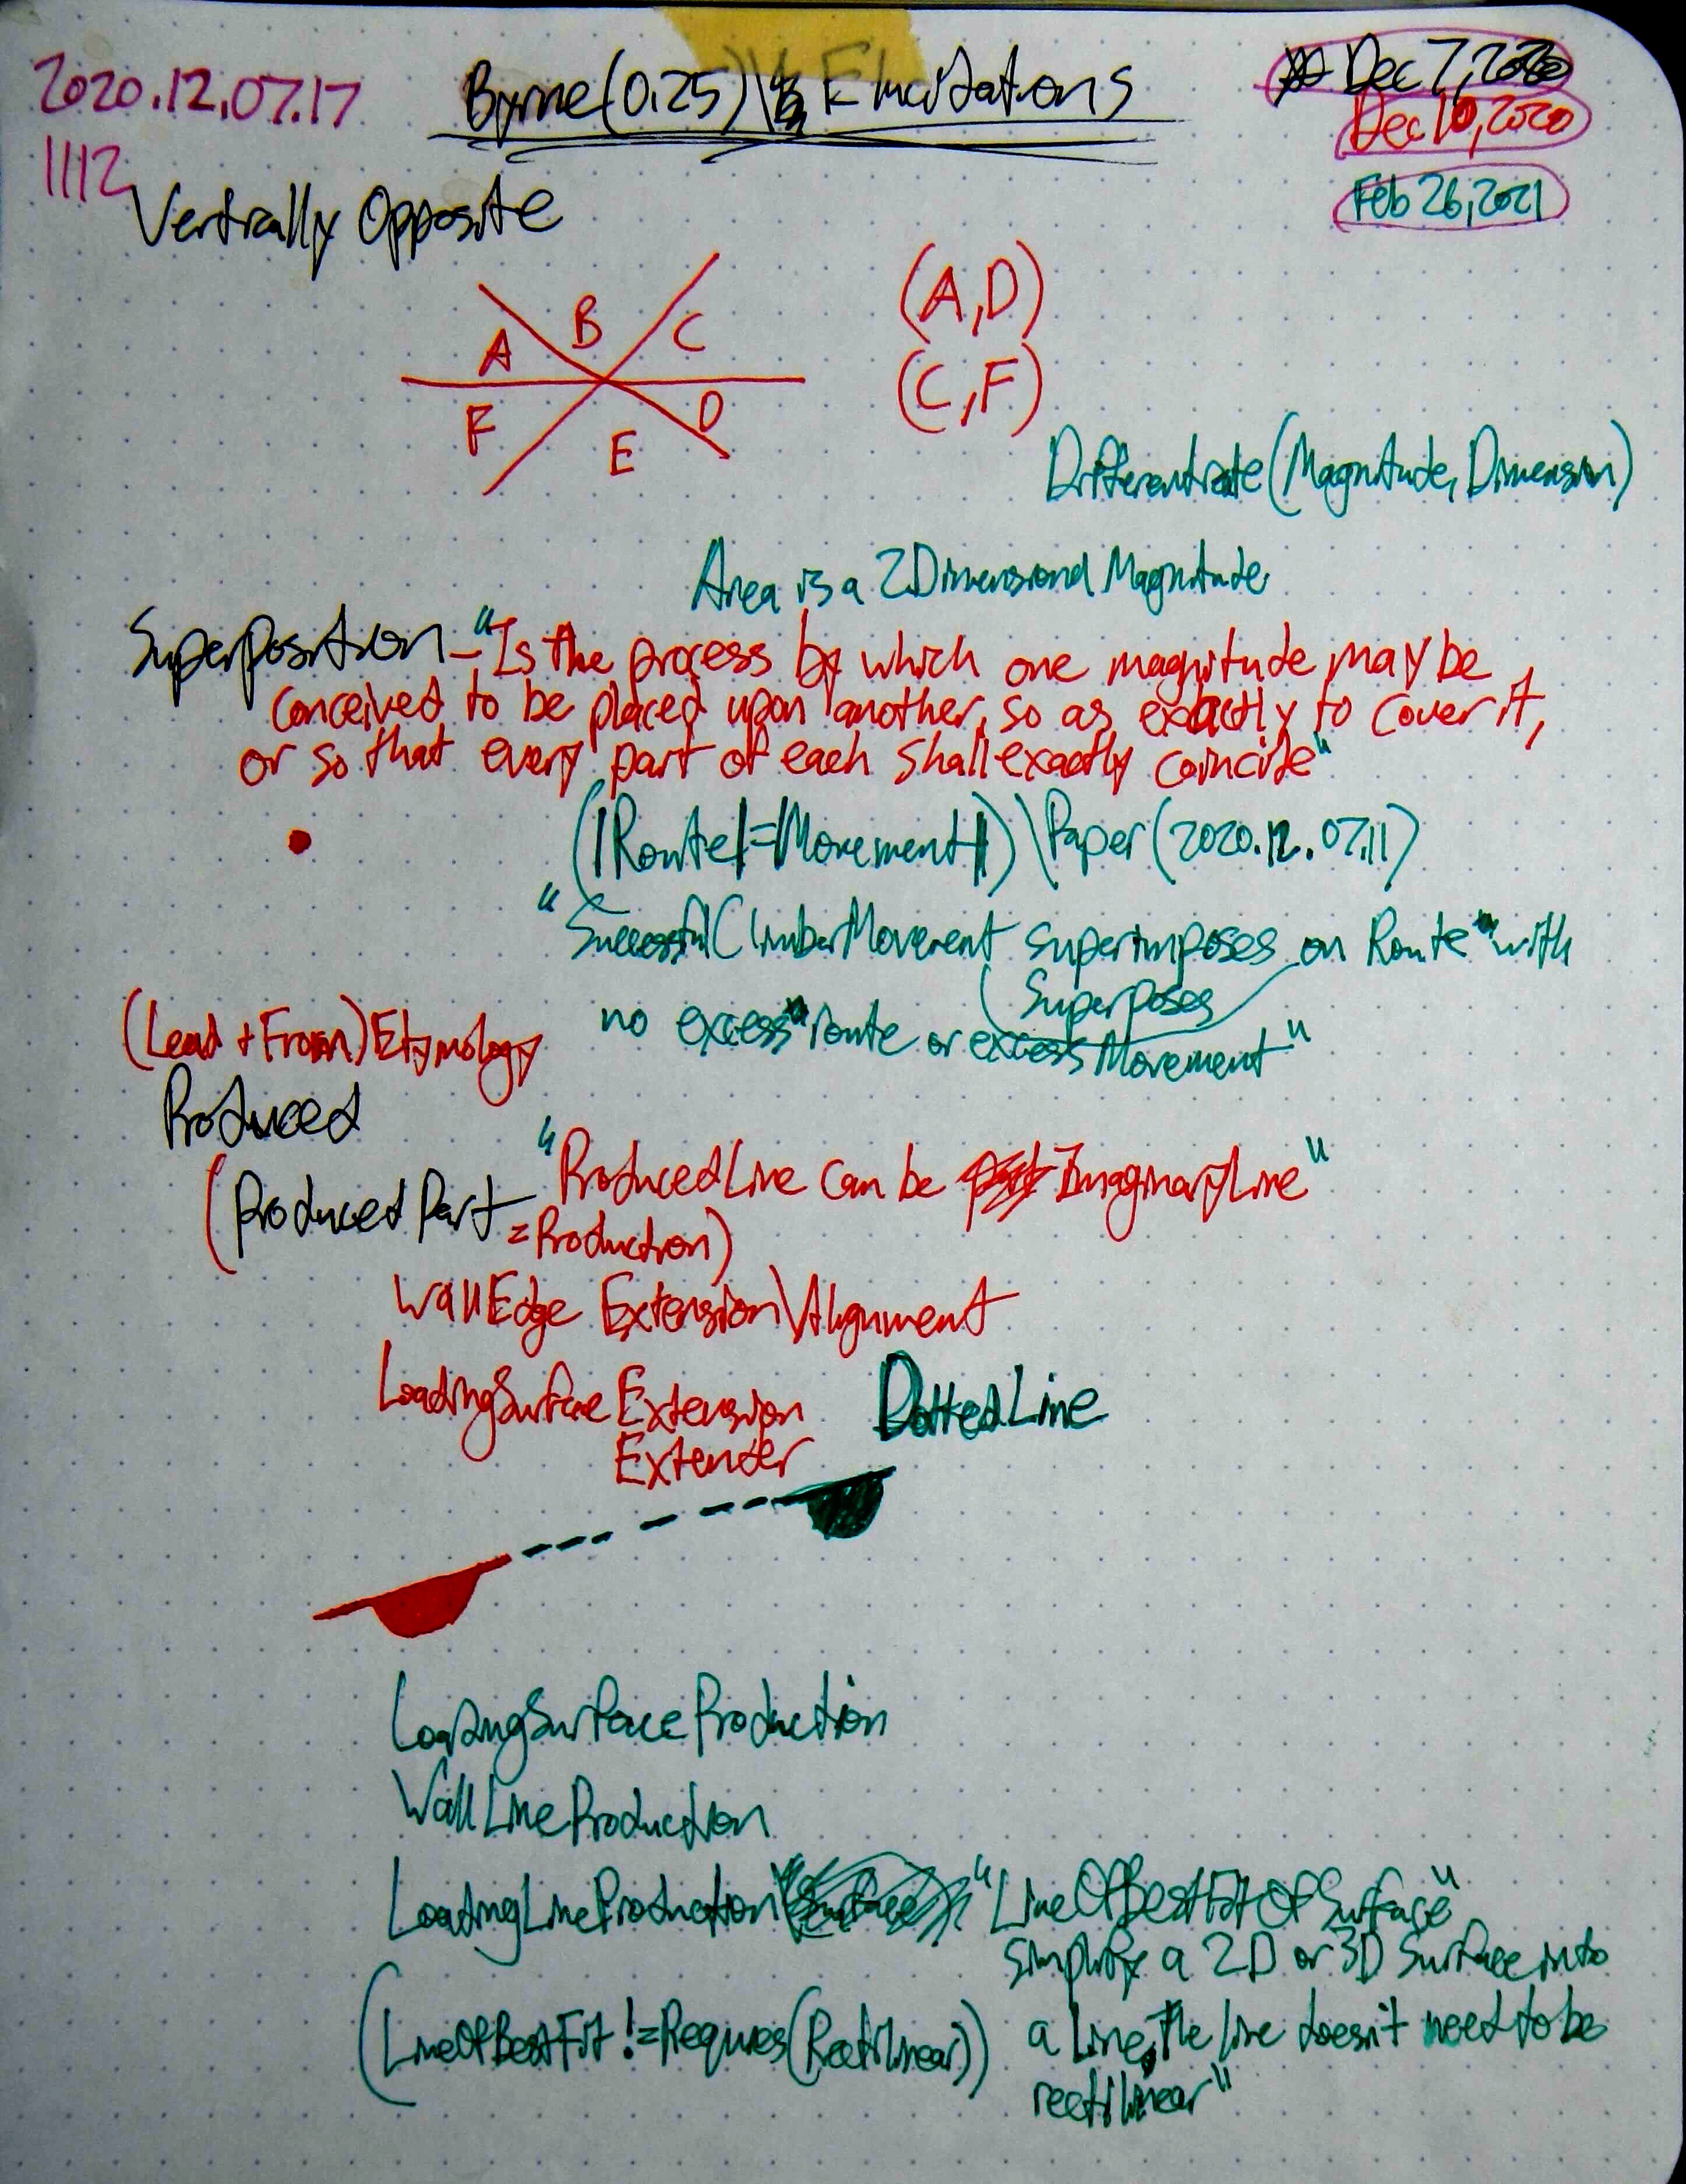 2020.12.07.17
1112
Byrne(0.25)\ Elucidations
Dec 7, 2020
Dec 10, 2020
Feb 26, 2021
Vertically Opposite
A B C
F E D
(A,D)
(C,F)
Differentiate(Magnitude, Dimension)
Area is a 2Dimensional Magnitude
Superposition - "Is the process by which one magnitude may be
conceived to be placed upon another, so as exactly to cover it,
or so that every part of each shall exactly coincide"
(|Route|=|Movement|)\Paper(2020.12.07.11)
"SuccessfulClimberMovement superimposes on Route with
(Superposes
no excess route or excess Movement"
(Lead + From)Etymology
Produced
"ProducedLine can be ImaginaryLine"
(Produced Part
=Production)
WallEdge Extension\Alignment
LoadingSurface Extension
Extender
DottedLine
LoadingSurfaceProduction
WallLineProduction
LoadingLineProduction "LineOfBestFitOfSurface"
simplify a 2D or 3D Surface into
(LineOfBestFit!=Requires(Rectilinear)) a Line, The line doesn't need to be
rectilinear"